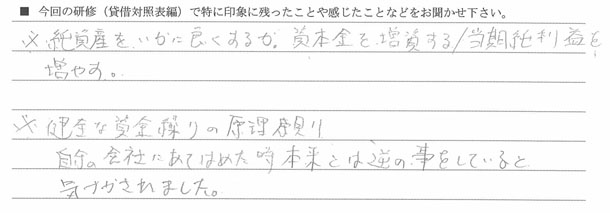 ■ 今回の研修（貸借対照表編）で特に印象に残ったことや感じたことなどをお聞かせ下さい。
※ 純資産をいかに良くするか。資本金を増資する/当期純利益を
増やす。
※ 健全な資金繰りの原理原則
自分の会社にあてはめた時本来とは逆の事をしていると
気づかされました。